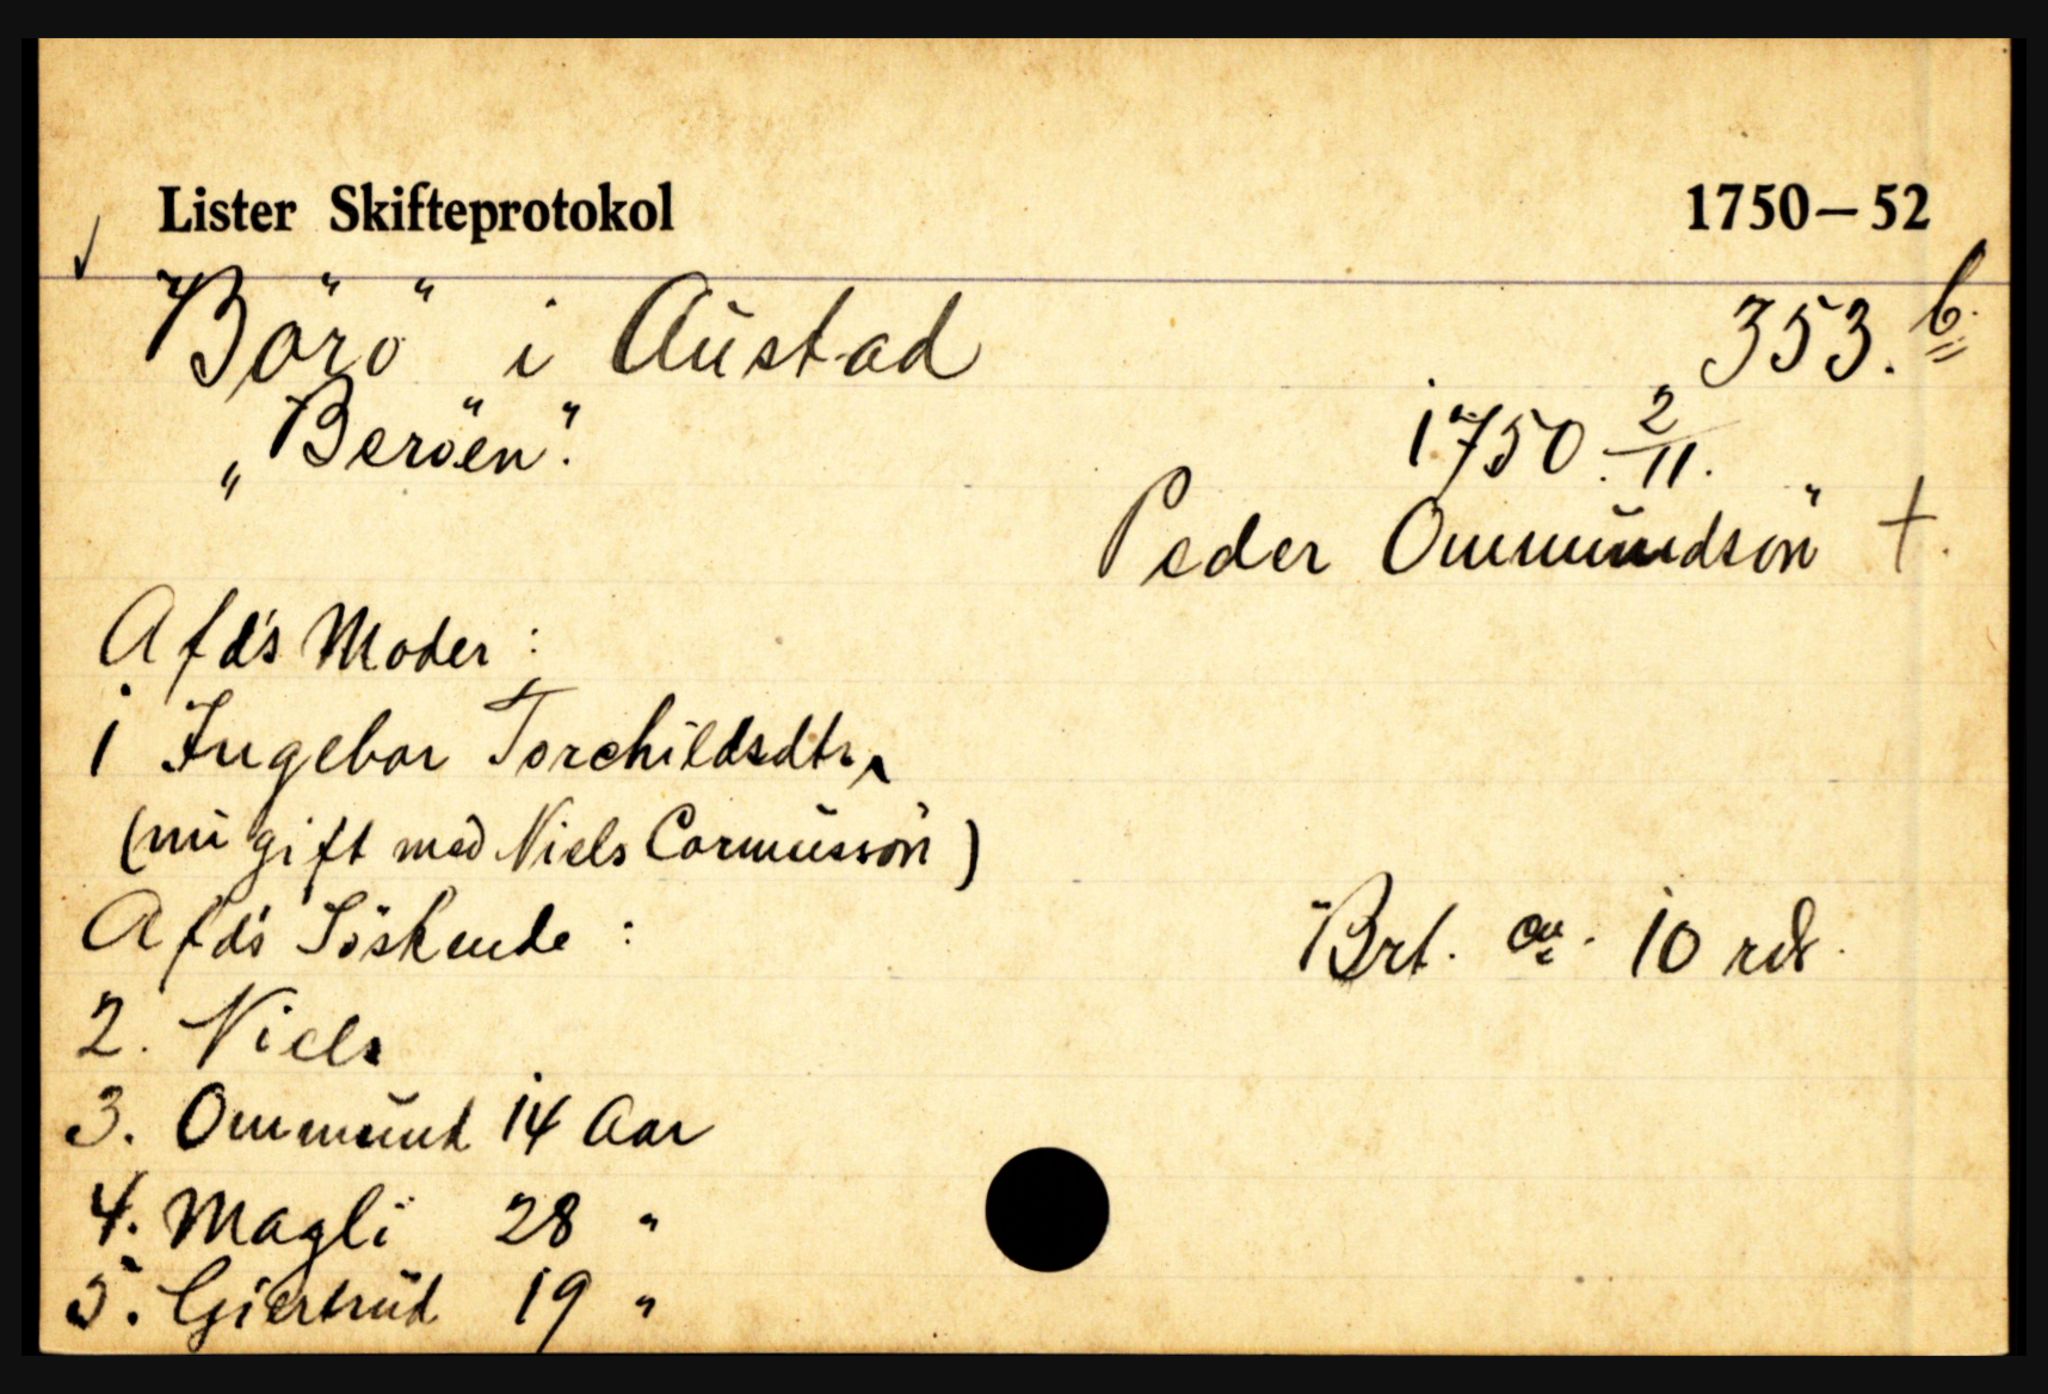 Lister Skifteprotokol 1750–52
Börö i Austad 353.b.
"Beröen". 1750 2/11.
Peder Ommundsön +.
Afd's Moder:
1 Ingebor Torchildsdtr,
(nu gift med Niels Cormussön)
Afd's Söskende: Brt. 10 rd.
2. Niels
3. Ommund 14 Aar
4. Magli 28 "
5. Giertrud 19 "